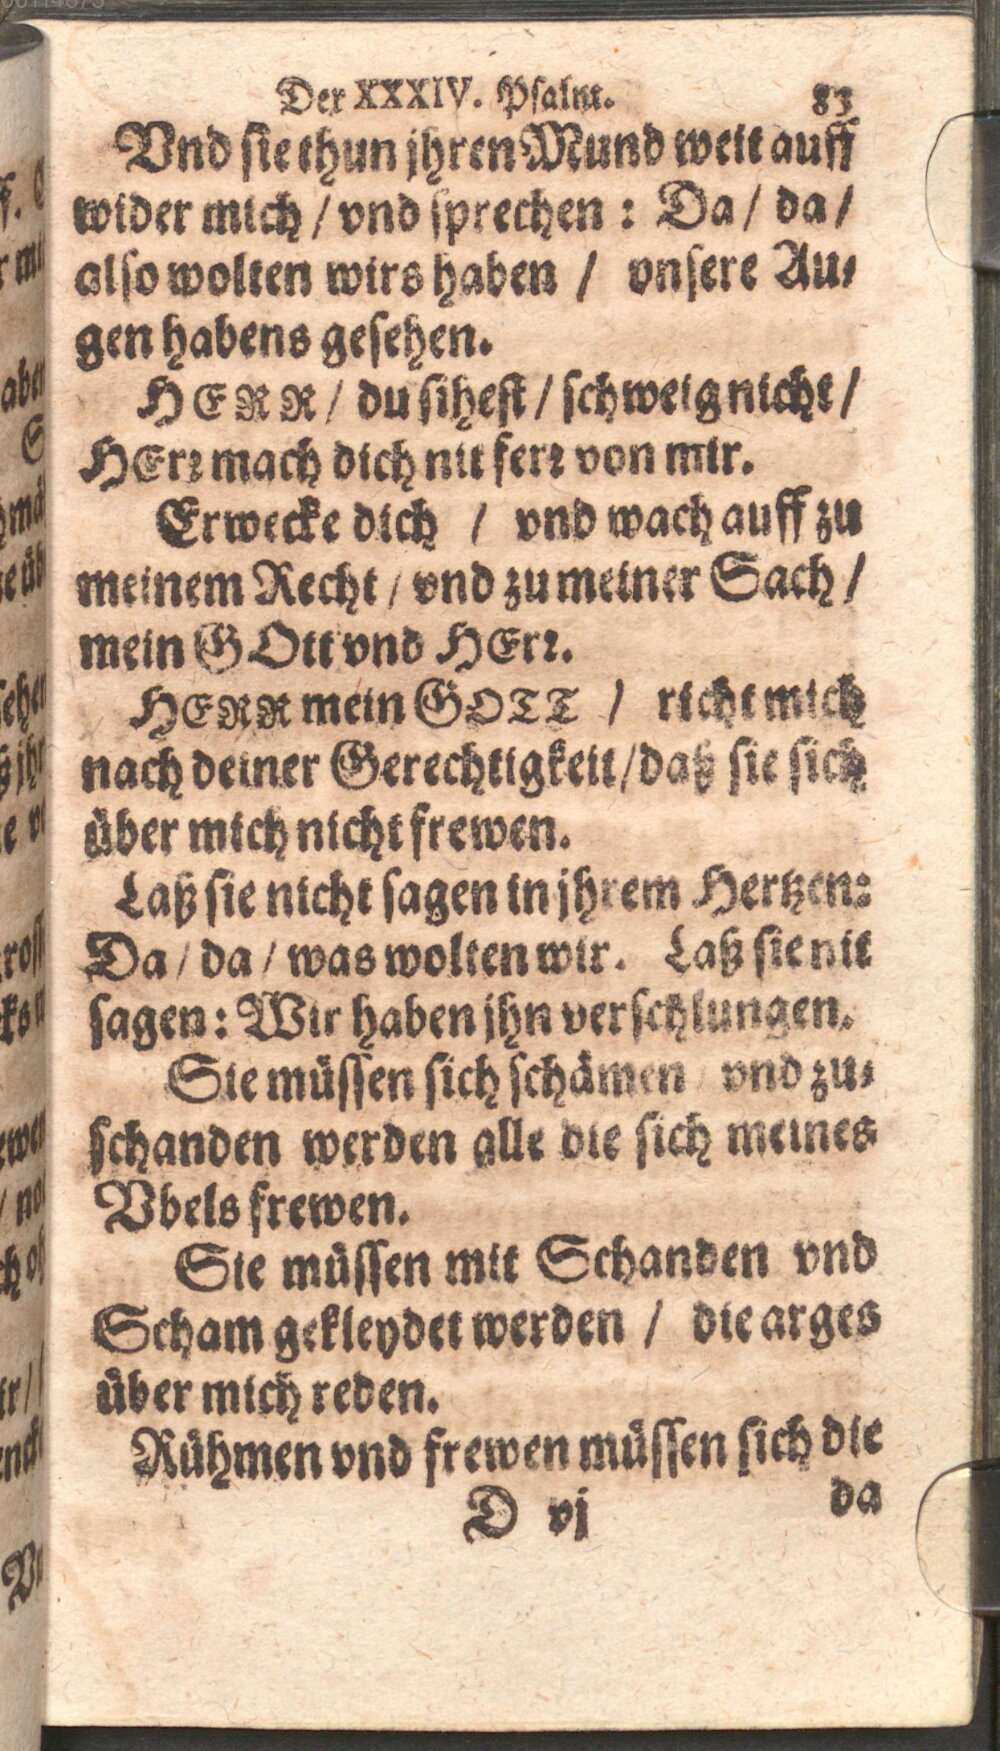 Der XXXIV. Psalm. 83
Vnd sie thun jhren Mund weit auff
wider mich / vnd sprechen : Da / da /
also wolten wirs haben / vnsere Au-
gen habens gesehen.
HERR / du sihest / schweig nicht /
HErꝛ mach dich nit ferꝛ von mir.
Erwecke dich / vnd wach auff zu
meinem Recht / vnd zu meiner Sach /
mein GOtt vnd HErꝛ.
HERR mein GOTT / richt mich
nach deiner Gerechtigkeit / daß sie sich
über mich nicht frewen.
Laß sie nicht sagen in jhrem Hertzen:
Da / da / was wolten wir. Laß sie nit
sagen : Wir haben jhn verschlungen.
Sie müssen sich schämen / vnd zu-
schanden werden alle die sich meines
Vbels frewen.
Sie müssen mit Schanden vnd
Scham gekleydet werden / die arges
über mich reden.
Rühmen vnd frewen müssen sich die
D vj da